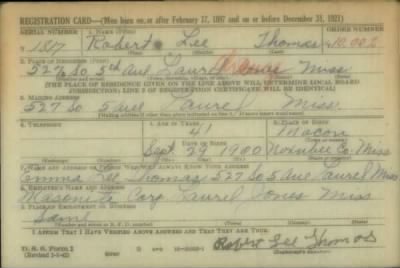 REGISTRATION CARD—(Men born on or after February 17, 1897 and on or before December 31, 1921)
SERIAL NUMBER 1. NAME (Print) ORDER NUMBER
Robert Lee Thomas
(First) (Middle) (Last)
2. PLACE OF RESIDENCE (Print)
527 So 5th Ave Laurel Jones Miss.
(THE PLACE OF RESIDENCE GIVEN ON THE LINE ABOVE WILL DETERMINE LOCAL BOARD
JURISDICTION; LINE 2 OF REGISTRATION CERTIFICATE WILL BE IDENTICAL)
3. MAILING ADDRESS
527 So 5 Ave Laurel Miss.
4. TELEPHONE 5. AGE IN YEARS 6. PLACE OF BIRTH
41 Macon
DATE OF BIRTH
Sept 29 1900 Noxubee Co. Miss
7. NAME AND ADDRESS OF PERSON WHO WILL ALWAYS KNOW YOUR ADDRESS
Lee Thomas 527 So 5 Ave Laurel Miss
8. EMPLOYER'S NAME AND ADDRESS
Masonite Corp Laurel Jones Miss
9. PLACE OF EMPLOYMENT OR BUSINESS
Same
I AFFIRM THAT I HAVE VERIFIED ABOVE ANSWERS AND THAT THEY ARE TRUE.
D. S. S. Form 1
Robert Lee Thomas
(Registrant's signature)